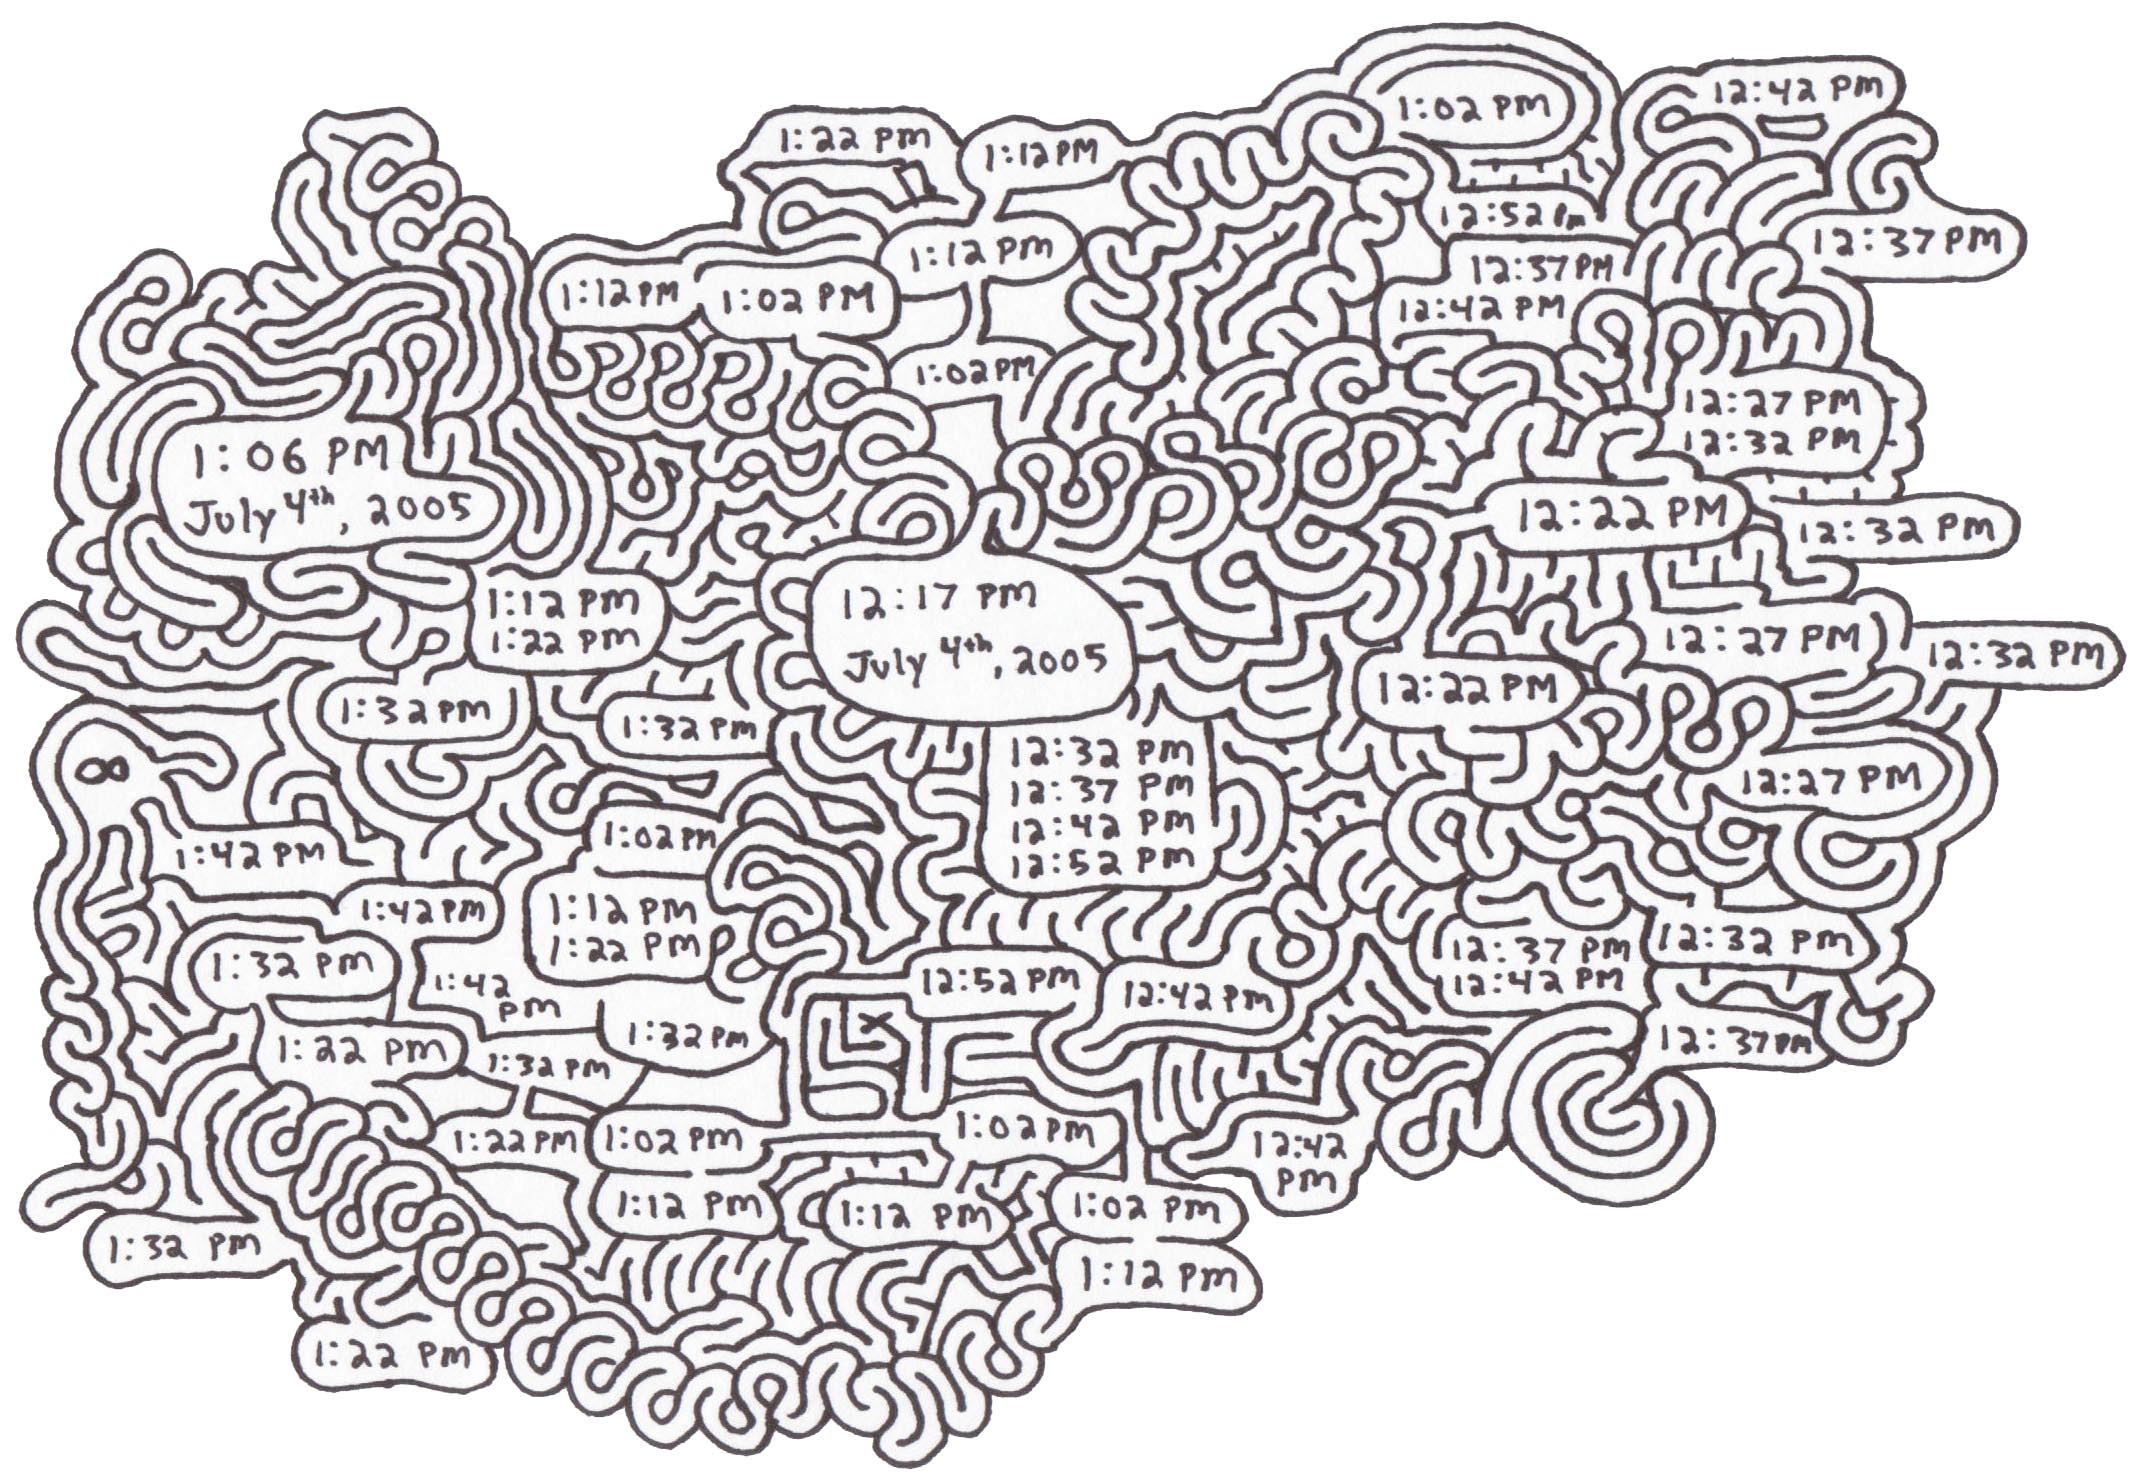 12:42 PM
1:02 PM
1:22 PM
1:12 PM
12:52 PM
12:37 PM
1:12 PM
12:37 PM
1:12 PM
1:02 PM
12:42 PM
1:02 PM
12:27 PM
12:32 PM
1:06 PM
July 4th, 2005
12:22 PM
12:32 PM
12:17 PM
July 4th, 2005
1:12 PM
1:22 PM
12:27 PM
12:32 PM
12:22 PM
1:32 PM
1:32 PM
12:32 PM
12:37 PM
12:42 PM
12:52 PM
12:27 PM
1:02 PM
1:42 PM
1:42 PM
1:12 PM
1:22 PM
12:37 PM
12:42 PM
12:32 PM
1:32 PM
12:52 PM
1:42
PM
12:42 PM
1:32 PM
12:37 PM
1:22 PM
1:32 PM
1:22 PM
1:02 PM
1:02 PM
12:42
PM
1:12 PM
1:12 PM
1:02 PM
1:32 PM
1:12 PM
1:22 PM